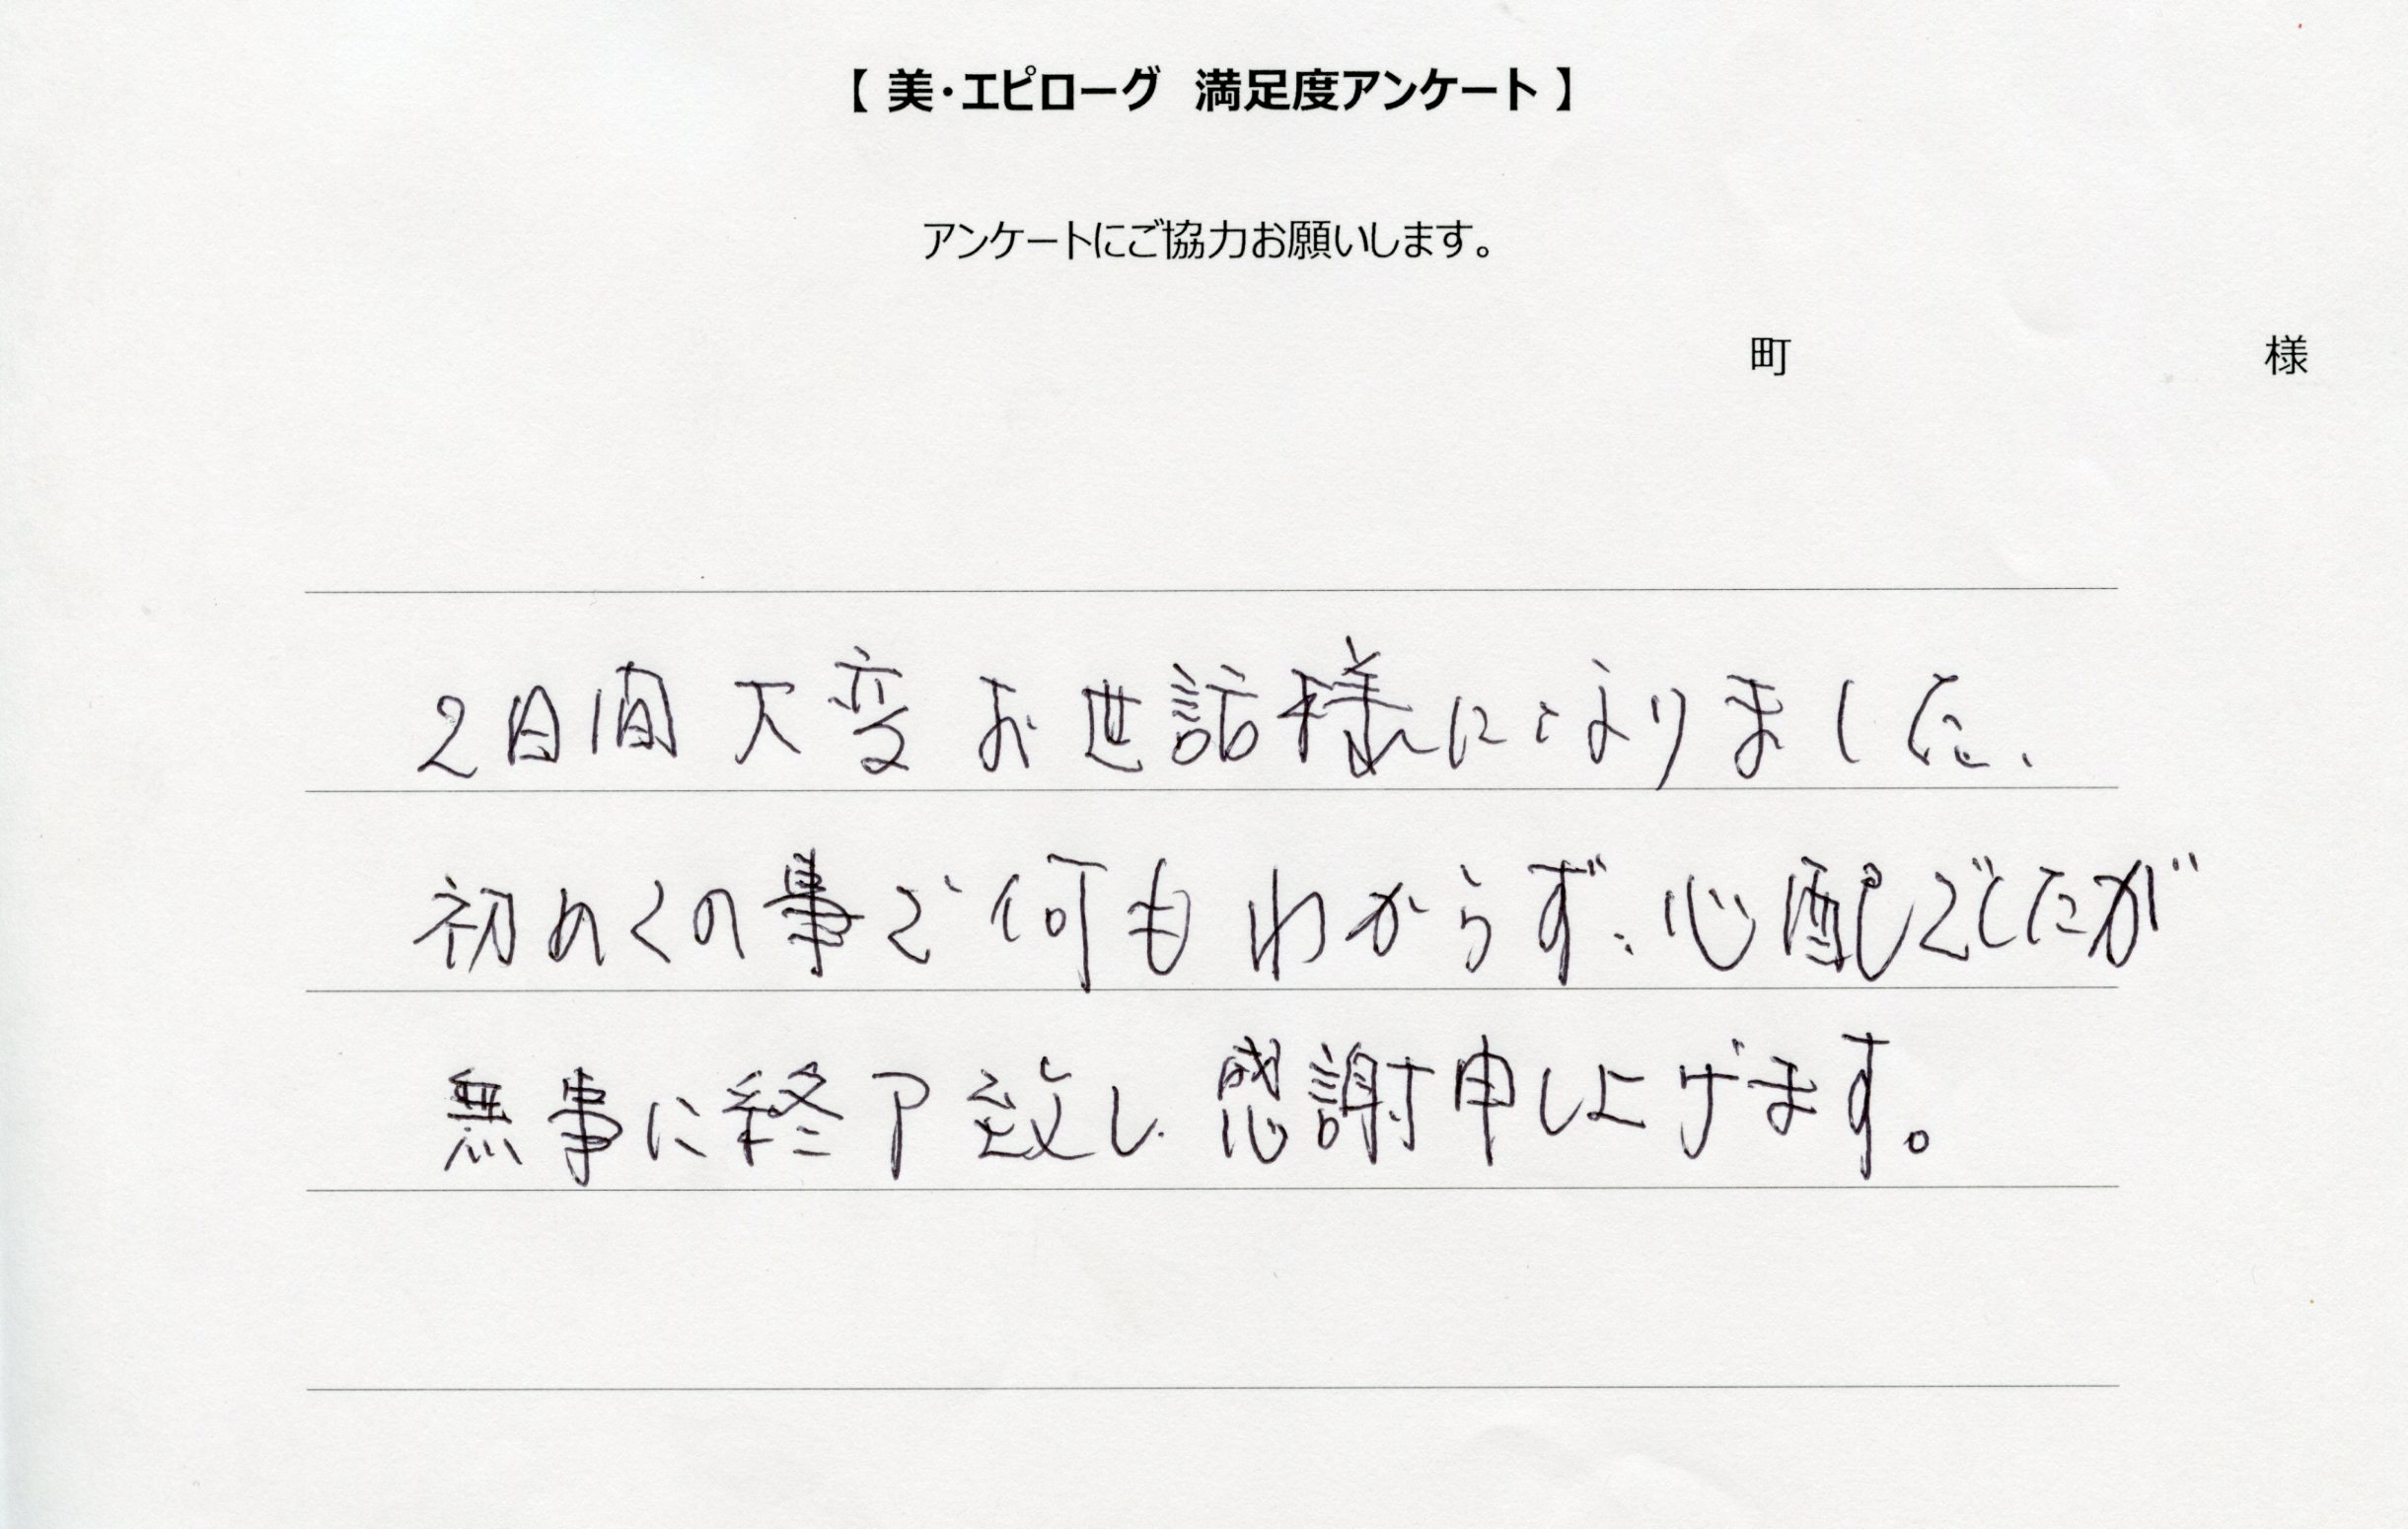 【 美・エピローグ 満足度アンケート 】
アンケートにご協力お願いします。
町 様
2日間 大変 お世話様になりました、
初めての事で 何も わからず、心配でしたが
無事に終了致し 感謝申し上げます。